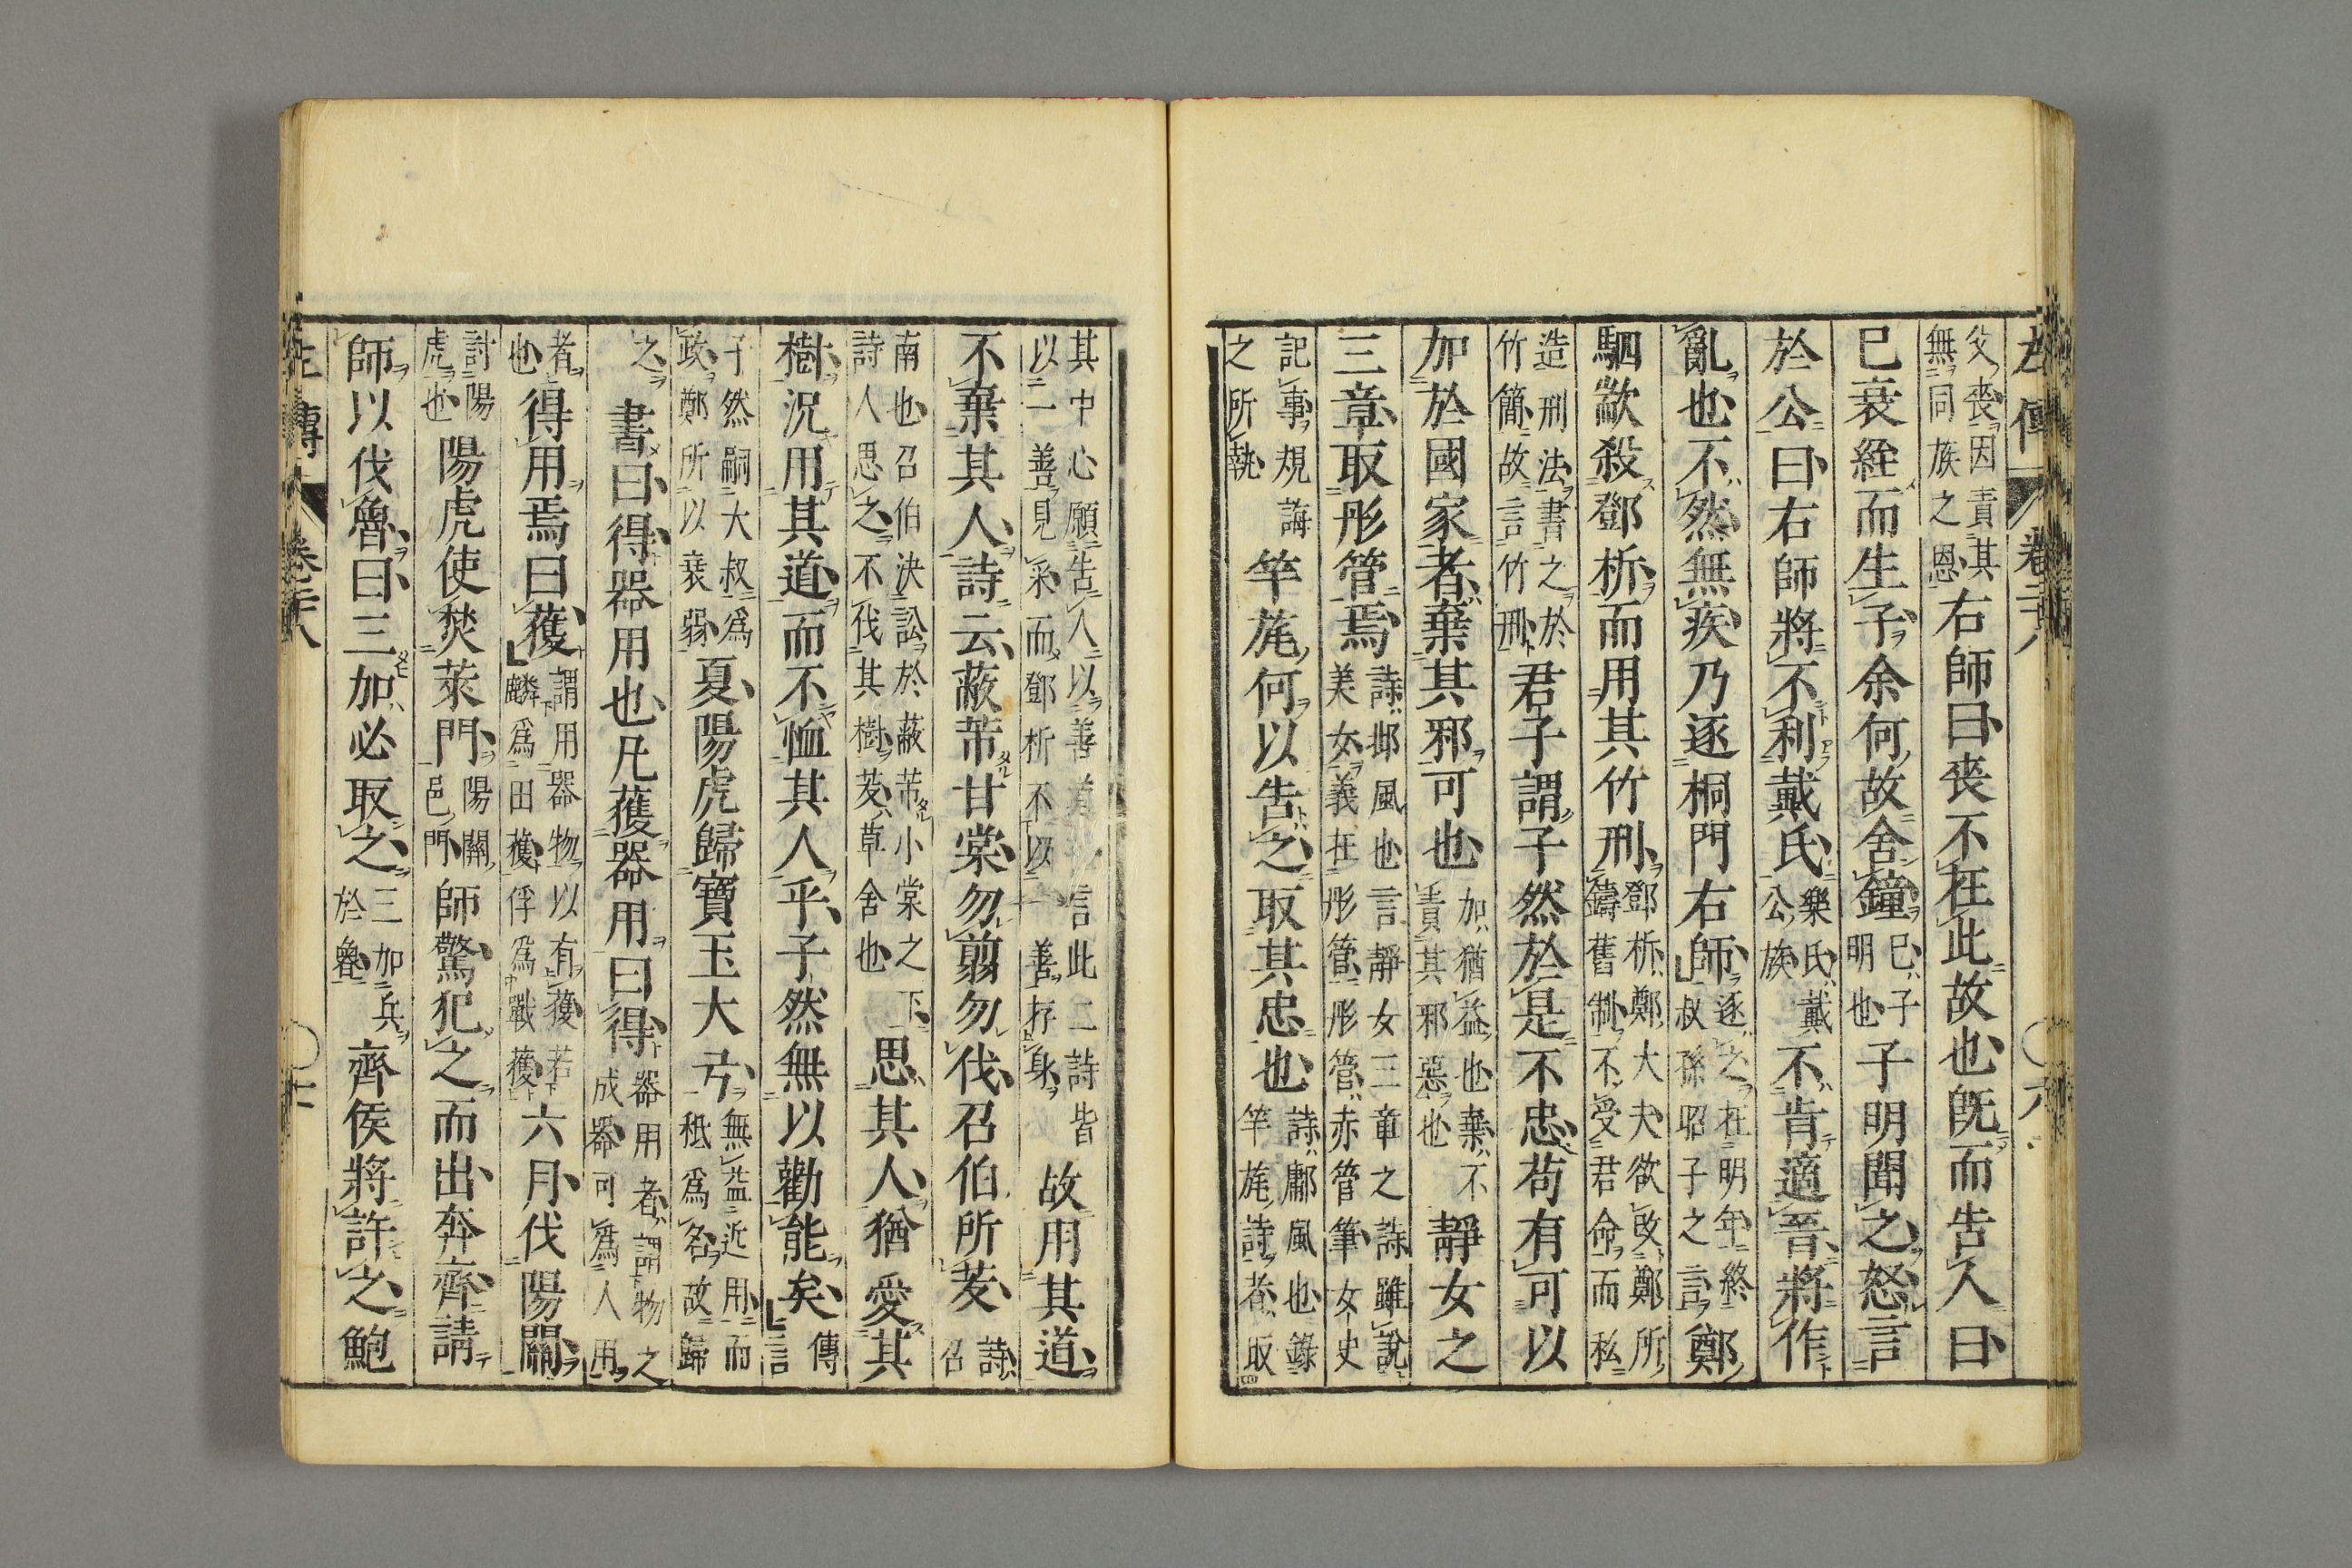 左傳 卷二十八 六
父喪因責其無同族之恩右師曰喪不在此故也既而告人曰
巳衰絰而生子余何故舍鐘巳子明也子明聞之怒言
於公曰右師將不利戴氏樂氏戴公族不肯適晉將作
亂也不然無疾乃逐桐門右師逐之在明年終叔孫昭子之言鄭
駟歂殺鄧析而用其竹刑鄧析鄭大夫欲改鄭所鑄舊制不受君命而私
造刑法書之於竹簡故言竹刑君子謂子然於是不忠苟有可以
加於國家者棄其邪可也加猶益也棄不責其邪惡也靜女之
三章取彤管焉詩邶風也言靜女三章之詩雖說美女義在彤管彤管赤管筆女史
記事規誨之所執竿旄何以告之取其忠也詩鄘風也錄竿旄詩者取
其中心願告人以善道言此二詩皆以一善見采而鄧析不以一善存身故用其道
不棄其人詩云蔽芾甘棠勿翦勿伐召伯所茇詩召
南也召伯決訟於蔽芾小棠之下詩人思之不伐其樹茇草舍也思其人猶愛其
樹況用其道而不恤其人乎子然無以勸能矣傳言
子然嗣大叔爲政鄭所以衰弱夏陽虎歸寶玉大弓無益近用而秪爲名故歸
之書曰得器用也凡獲器用曰得器用者謂物之成器可爲人用
者也得用焉曰獲謂用器物以有獲若麟爲田獲俘爲戰獲六月伐陽關
討陽虎也陽虎使焚萊門陽關邑門師驚犯之而出奔齊請
師以伐魯曰三加必取之三加兵於魯齊侯將許之鮑
左傳 卷二十八 七